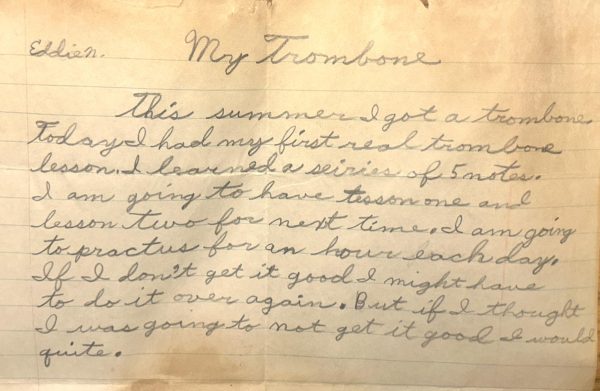 Eddie n. My Trombone
This summer I got a trombone.
Today I had my first real trombone
lesson. I learned a seiries of 5 notes.
I am going to have lesson one and
lesson two for next time. I am going
to practus for an hour each day.
If I don't get it good I might have
to do it over again. But if I thought
I was going to not get it good I would
quite.